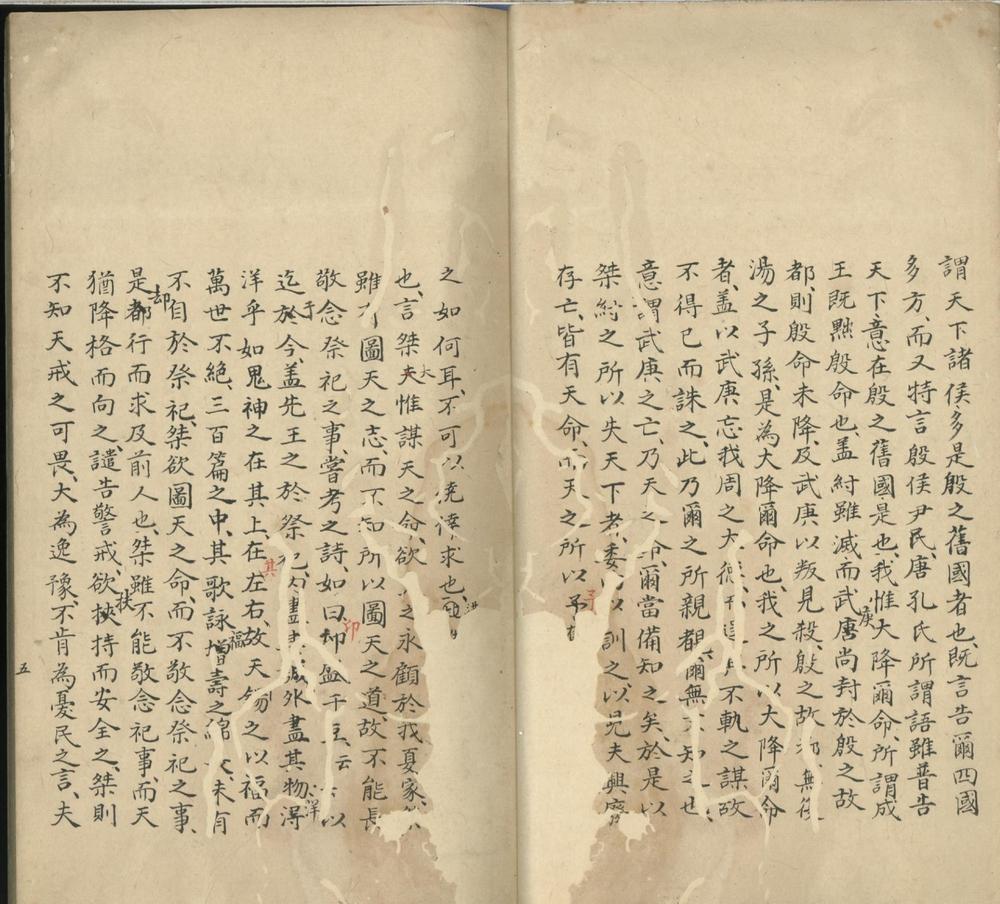 謂天下諸侯多是殷之舊國者也、既言告爾四國
多方、而又特言殷侯尹民、唐孔氏所謂語雖普告
天下、意在殷之舊國是也、我惟大降爾命、所謂成
王既黜殷命也、蓋紂雖滅而武唐尚封於殷之故
庚
都、則殷命未降、及武庚以叛見殺、殷之故都無復
湯之子孫、是為大降爾命也、我之所以大降爾命
者、蓋以武庚忘我周之大德不軌之謀故
不得已而誅之、此乃爾之所親覩爾無不知之也、
意謂武庚之亡、乃天之命、爾當備知之矣、於是以
桀紂之所以失天下者、委以訓之、以見夫興廢
存亡、皆有天命、而天之所以予
予
之如何耳、不可以僥倖求也、
也、言桀夫惟謀天之命、欲之永顧於我夏家、
大
雖有圖天之志、而不知所以圖天之道、故不能長
敬念祭祀之事、嘗考之詩、如曰、卬盛于豆、云以
卬
迄於今、蓋先王之於祭祀、內盡其外盡其物、淂
于
洋
洋乎如鬼神之在其上在左右、故天錫之以福而
其
萬世不絕、三百篇之中、其歌詠增壽之未有
福
不自於祭祀、桀欲圖天之命、而不敬念祭祀之事、
是都行而求及前人也、桀雖不能敬念祀事、而天
却
猶降格而向之、譴告警戒、欲挾持而安全之、桀則
扶
不知天戒之可畏、大為逸豫、不肯為憂民之言、夫
五